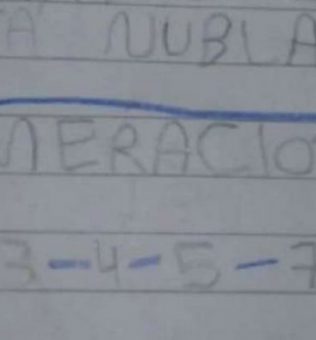 A NUBLA
NERACIO
3-4-5-7